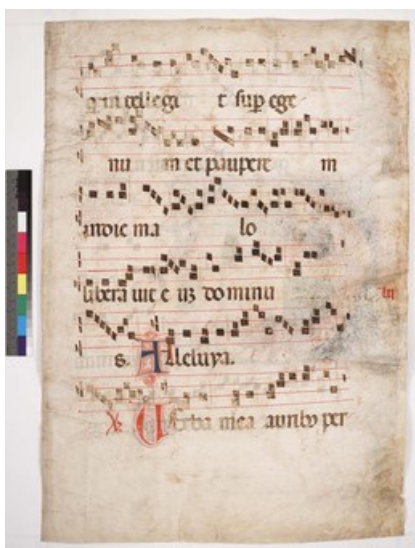 qui intellegi t sup ege
nu m et paupere m
in die ma lo
libera uit e uz do minu
s. Alleluya.
℣. Verba mea auribus per